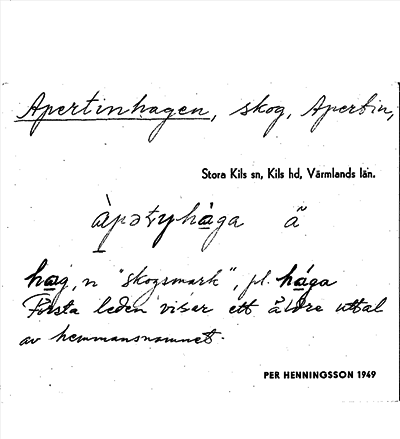 Apertinhagen, skog, Apertin,
Stora Kils sn, Kils hd, Värmlands län.
àpətyhåga ä̃
hag, n "skogsmark", pl. håga
Första leden visar ett äldre uttal
av hemmansnamnet.
PER HENNINGSSON 1949